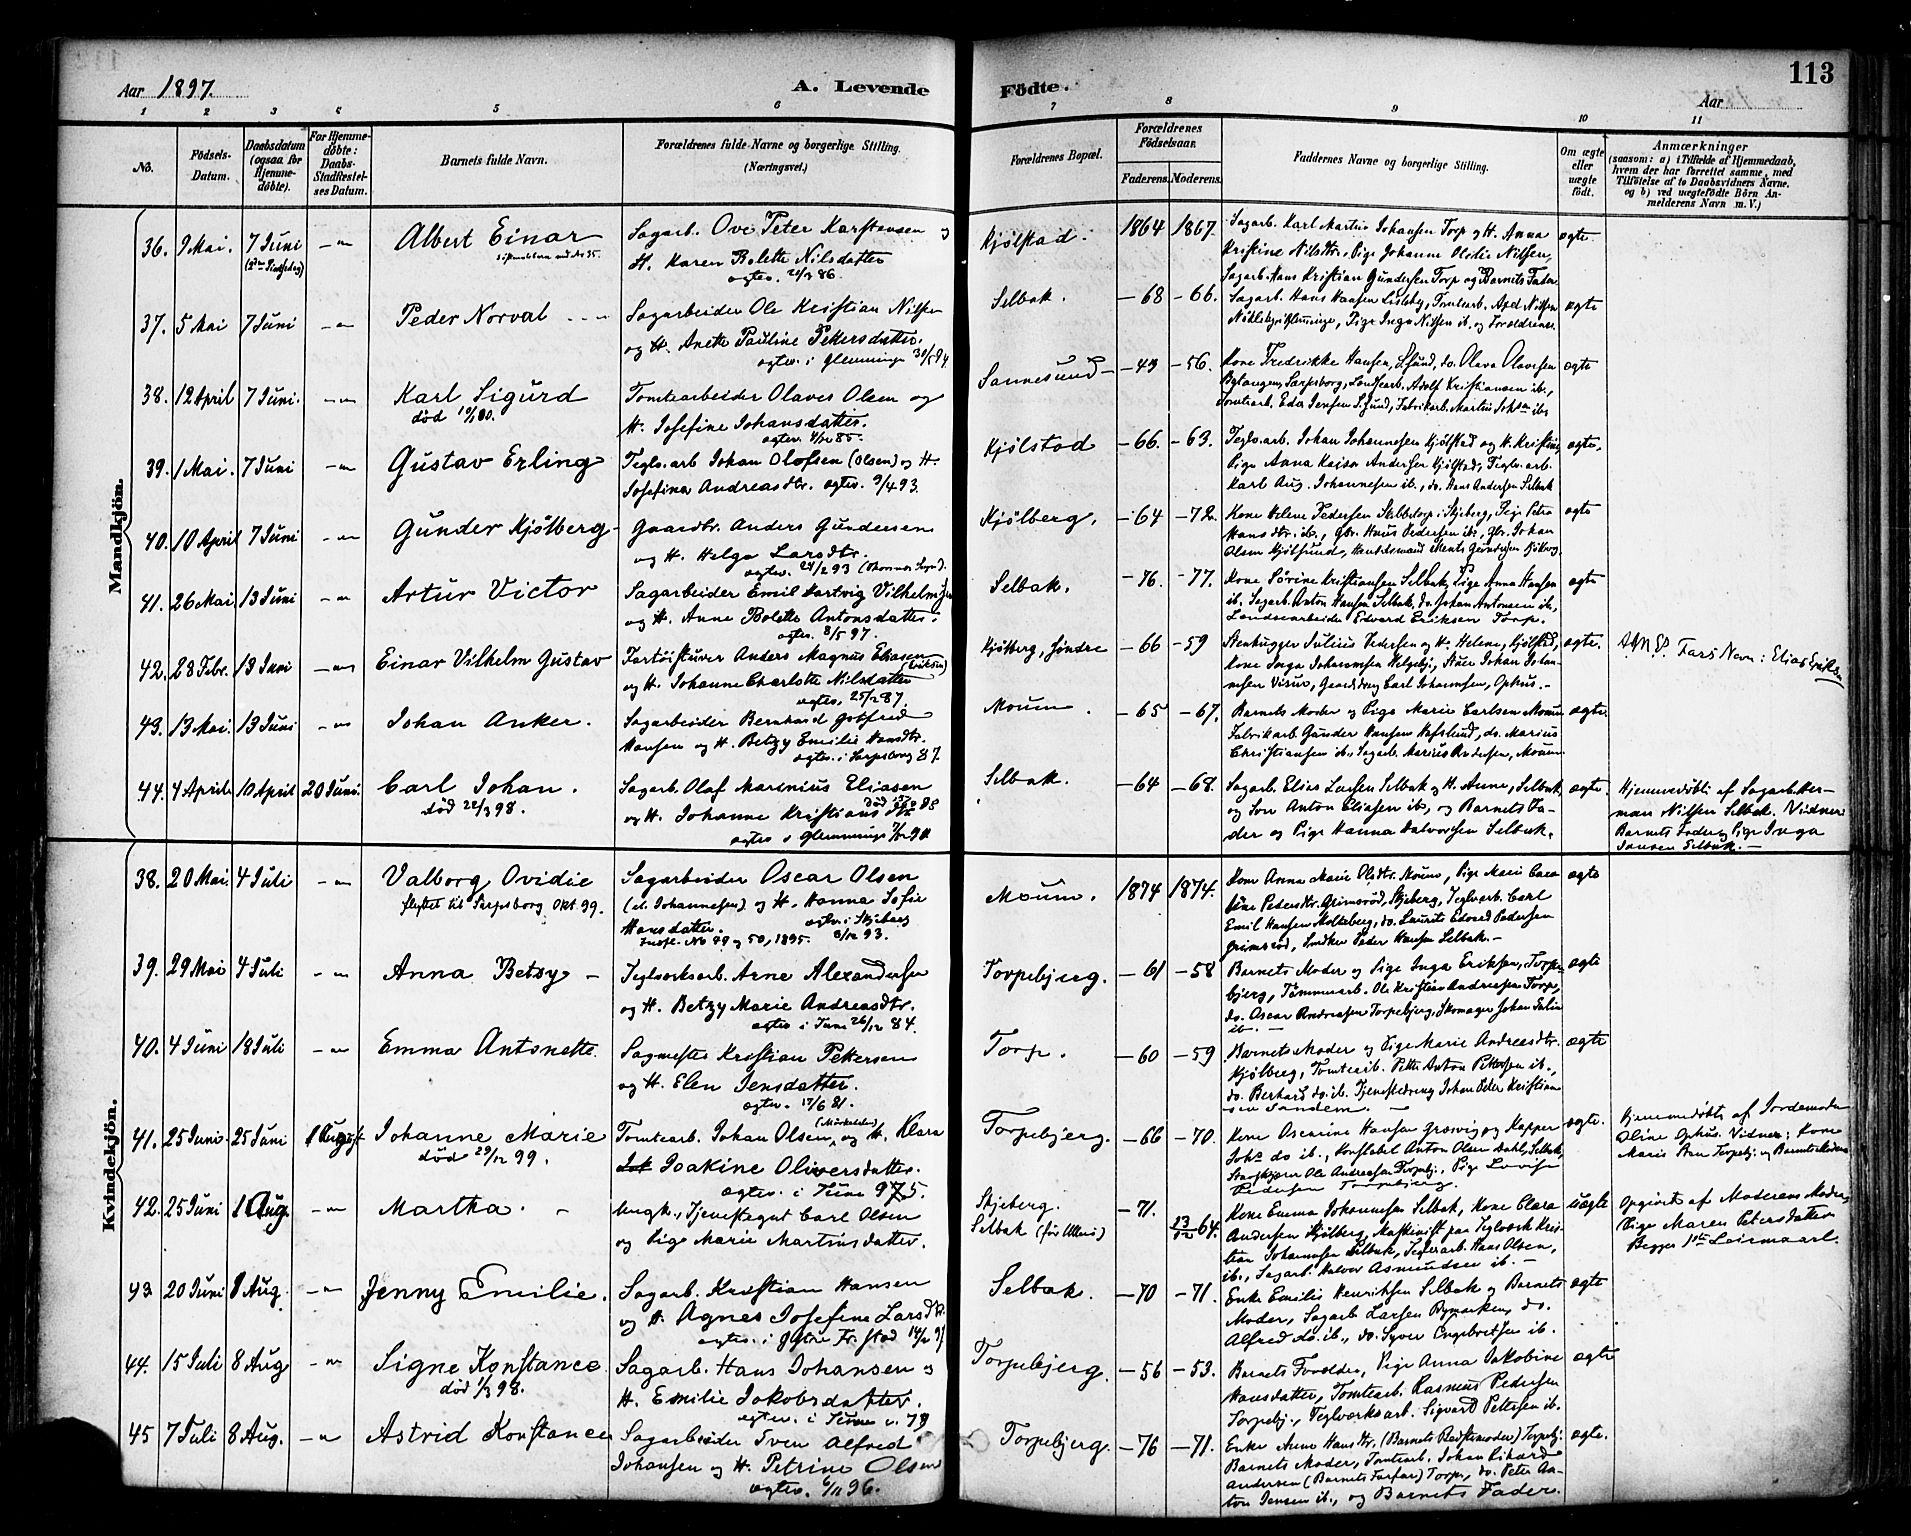 Aar 1897.
A. Levende
Födte.
113
Aar
1 2 3 4 5 6 7 8 9 10 11
No.
Födsels-Datum.
Daabsdatum (ogsaa for Hjemmedøbte).
For Hjemmedøbte: Daabs-Stadfæstelses Datum.
Barnets fulde Navn.
Forældrenes fulde Navne og borgerlige Stilling. (Næringsvei.)
Forældrenes Bopæl.
Forældrenes Födselsaar.
Faderens. Moderens.
Faddernes Navne og borgerlige Stilling.
Om ægte eller uægte födt.
Anmærkninger
(saasom: a) i Tilfælde af Hjemmedaab,
hvem der har forrettet samme, med
Tilföielse af to Daabsvidners Navne.
og b) ved uægtefödte Börn An-
melderens Navn m. V.)
Mandkjön.
36. 9 Mai. 7 Juni Albert Einar Sagarb. Ove Peter Karstensen og
H. Karen Bolette Nilsdatter
Kjølstad. 1864 1867. Sagarb. Karl Martin Johansen Torp og H. Anna
Kristine Nilsdtr., Pige Johanne Nilsen,
Sagarb. Hans Kristian Gundersen Torp og Barnets Fader
ægte
37. 5 Mai 7 Juni Peder Norval Sagarbeider Ole Kristian Nilsen
og H. Anette Pauline Petersdatter.
ægtev. i Glemminge
Selbak. —68 —66. Sagarb. Hans Hansen Lisleby, Tomtearb. Axel Nilsen
Pige Inga Nilsen ib. og Forældrene
ægte
38. 12 April 7 Juni. Karl Sigurd
død
Tomtearbeider Olaves Olsen og
H. Josefine Johansdatter.
ægtev. 85.
Sannesund —49 —56. Kone Fredrikke Hansen, Olava Olavesen
Sarpsborg, Adolf Kristiansen ib.,
Tomtearb.
ægte
39. 1 Mai. 7 Juni Gustav Erling Teglv.arb Johan Olofsen (Olsen) og H.
Josefina Andreasdtr. ægtev. 9/4 93.
Kjølstad —66. —63. Teglv.arb. Johan Johannesen Kjølstad og H. Kristine,
Pige Anna Kajsa Andersen Kjølstad, Teglv.arb.
Karl Aug. Johannesen ib., do. Hans Andersen Selbak
ægte.
40. 10 April 7 Juni Gunder Kjølberg Gaardbr. Anders Gundersen
og H. Helga Larsdtr.
Kjølberg. —64 —72. Kone Helene Pedersen Skjeberg, Pige Petra
Hansdtr. ib., Gbr. Hans Pedersen ib., Gbr. Johan
Olsen
ægte
41. 26 Mai. 13 Juni Artur Victor Sagarbeider Emil Hartvig Vilhelmsen
og H. Anne Bolette Antonsdatter.
ægtev. 8/5 97.
Selbak. —76. —77. Kone Sørine Kristiansen Selbak, Pige Anna Hansen
ib. Sagarb. Anton Hansen Selbak, do. Johan Antonsen ib.,
Landsearbeider Edvard Eriksen Torp.
ægte
42. 28 Febr. 13 Juni Einar Vilhelm Gustav Anders Magnus Eliasen
(Eriksen)
og H. Johanne Charlotte Nilsdatter
Kjølberg, Søndre —66 —59 Stenhugger Julius Pedersen og H. Helene, Kjølstad,
Kone Inga Johannesen Johan Johan-
nesen Visur, Carl Johannsen, Ophus.
ægte.
Fars Navn: Elias Eriksen
43. 13 Mai. 13 Juni Johan Anker. Sagarbeider Bernhard Gotfred
Hansen og H. Betzy Emilie Hansdtr.
ægtev. i Sarpsborg 87.
Moum. —65 —67. Barnets Moder og Pige Marie Carlsen Moum
Fabrikarb. Gunder Hansen Hafslund, do. Marius
Christiansen ib., Sagarb. Marius Andersen, Moum
ægte.
44. 4 April. 10 April 20 Juni. Carl Johan.
død 22/3 98.
Sagarb. Olaf Marinius Eliasen
og H. Johanne Kristians dtr.
ægtev. i Glemminge
Selbak. —64 —68. Sagarb. Elias Larsen Selbak og H. Anne, Selbak
og Søn Anton Eliasen ib., og Barnets Fa-
der og Pige Hanna Halvorsen Selbak.
ægte.
Hjemmedøbt af Sagarb. Her-
man Nilsen Selbak. Vidner
Barnets Fader og Pige Inga
Jansen Selbak.
Kvindekjön.
38. 20 Mai. 4 Juli Valborg Ovidie
flyttet til Sarpsborg Okt. 99.
Sagarbeider Oscar Olsen
(el. Johannesen) og H. Hanna Sofie
Hansdatter. ægtev. i Skjeberg
8/12 93.
No 49 og 50, 1895.
Moum. 1874 1874. Kone Anna Marie Olsdtr. Moum, Pige Marie
Pedersdtr. Grimsrød, Skjeberg, Teglv.arb. Carl
Emil Hansen do. Laurits Edvard Pedersen
Grimsrød, Peder Hansen Selbak.
ægte
39. 29 Mai 4 Juli Anna Betzy Teglverksarb. Arne Alexandersen
og H. Betzy Marie Andreasdtr.
ægtev. i Tune 26/12 84.
Torpebjerg. —61 —58 Barnets Moder og Pige Inga Eriksen, Torpe-
bjerg, Tømmerarb. Ole Kristian Andreasen Torp,
do. Oscar Andreasen Torpebjerg, Skomager Johan Julin
ib.
ægte
40. 4 Juni 18 Juli Emma Antonette. Sagmester Kristian Petersen
og H. Elen Jensdatter.
ægtev. 17/6 81.
Torp. —60 —59 Barnets Moder og Pige Marie Andreasdtr.
Kjølberg, Tomtearb. Petter Anton Petersen ib.,
do. Berhard do. ib. Tjenestedreng Johan Peter Kristian-
sen Sanden.
ægte
41. 25 Juni 25 Juni 1 August Johanne Marie
død 29/12 99.
Tomtearb. Johan Olsen og H. Klara
Joakine Oliversdatter.
ægtev. i Tune
Torpebjerg. —66 —70. Kone Oscarine Hansen
do ib., Konstabel Anton Olsen Dahl, Selbak,
Ole Andreasen Torpebj., Pige Lovise
Pedersen Torpebjerg.
ægte.
Hjemmedøbt af Jordemoder
Oline Ophus. Vidner: Kone
Maris Torpebj. og Barnets Moder
42. 25 Juni 1 Aug. Martha. Ungk., Tjenestegut Carl Olsen
og Pige Marie Martinsdatter.
Skjeberg.
Selbak (før Ullerø)
—71. 23/12 64. Kone Emma Johannesen Selbak, Kone Clara
Andersen Kjølberg, Maskinist paa Teglverk Kris-
tian Johannesen Selbak, Teglv.arb. Hans Olsen,
ib., Sagarb. Halvor Asmundsen ib.
uægte
Opgivet af Moderens Moder,
Pige Maren Petersdatter
Begges 1ste Leiermaal.
43. 20 Juni 8 Aug. Jenny Emilie. Sagarb. Kristian Hansen
og H. Agnes Josefine Larsdtr.
ægtev. i Østre Fr.stad
Selbak. —70 —71. Enke Emilie Henriksen Selbak og Barnets
Moder, Sagarb. Larsen Bymarken, do.
Alfred do. ib., do. Syver Engebretsen ib.
ægte
44. 15 Juli 8 Aug Signe Konstance.
død 1/3 98.
Sagarb. Hans Johansen og
H. Emilie Jakobsdatter.
ægtev. i Tune
Torpebjerg. —56 —53. Barnets Forældre, Pige Anna Jakobine
Hansdatter, Tomtearb. Rasmus Pedersen
Torpebj., Teglværksarb. Sigvard Pettersen ib.
ægte
45 7 Juli 8 Aug. Astrid Konstance Sagarbeider Sven Alfred
Johansen og H. Petrine Olsen
ægtev. 6/11 96.
Torpebjerg. —76 —71. Enke Anne Hansdtr. (Barnets Bedstemoder) Torpebj.
Barnets Moder, Tomtearb. Johan Rikard
Andersen (Barnets Farfar) Torp, do. Peter An-
ton Jensen ib., og Barnets Fader.
ægte.